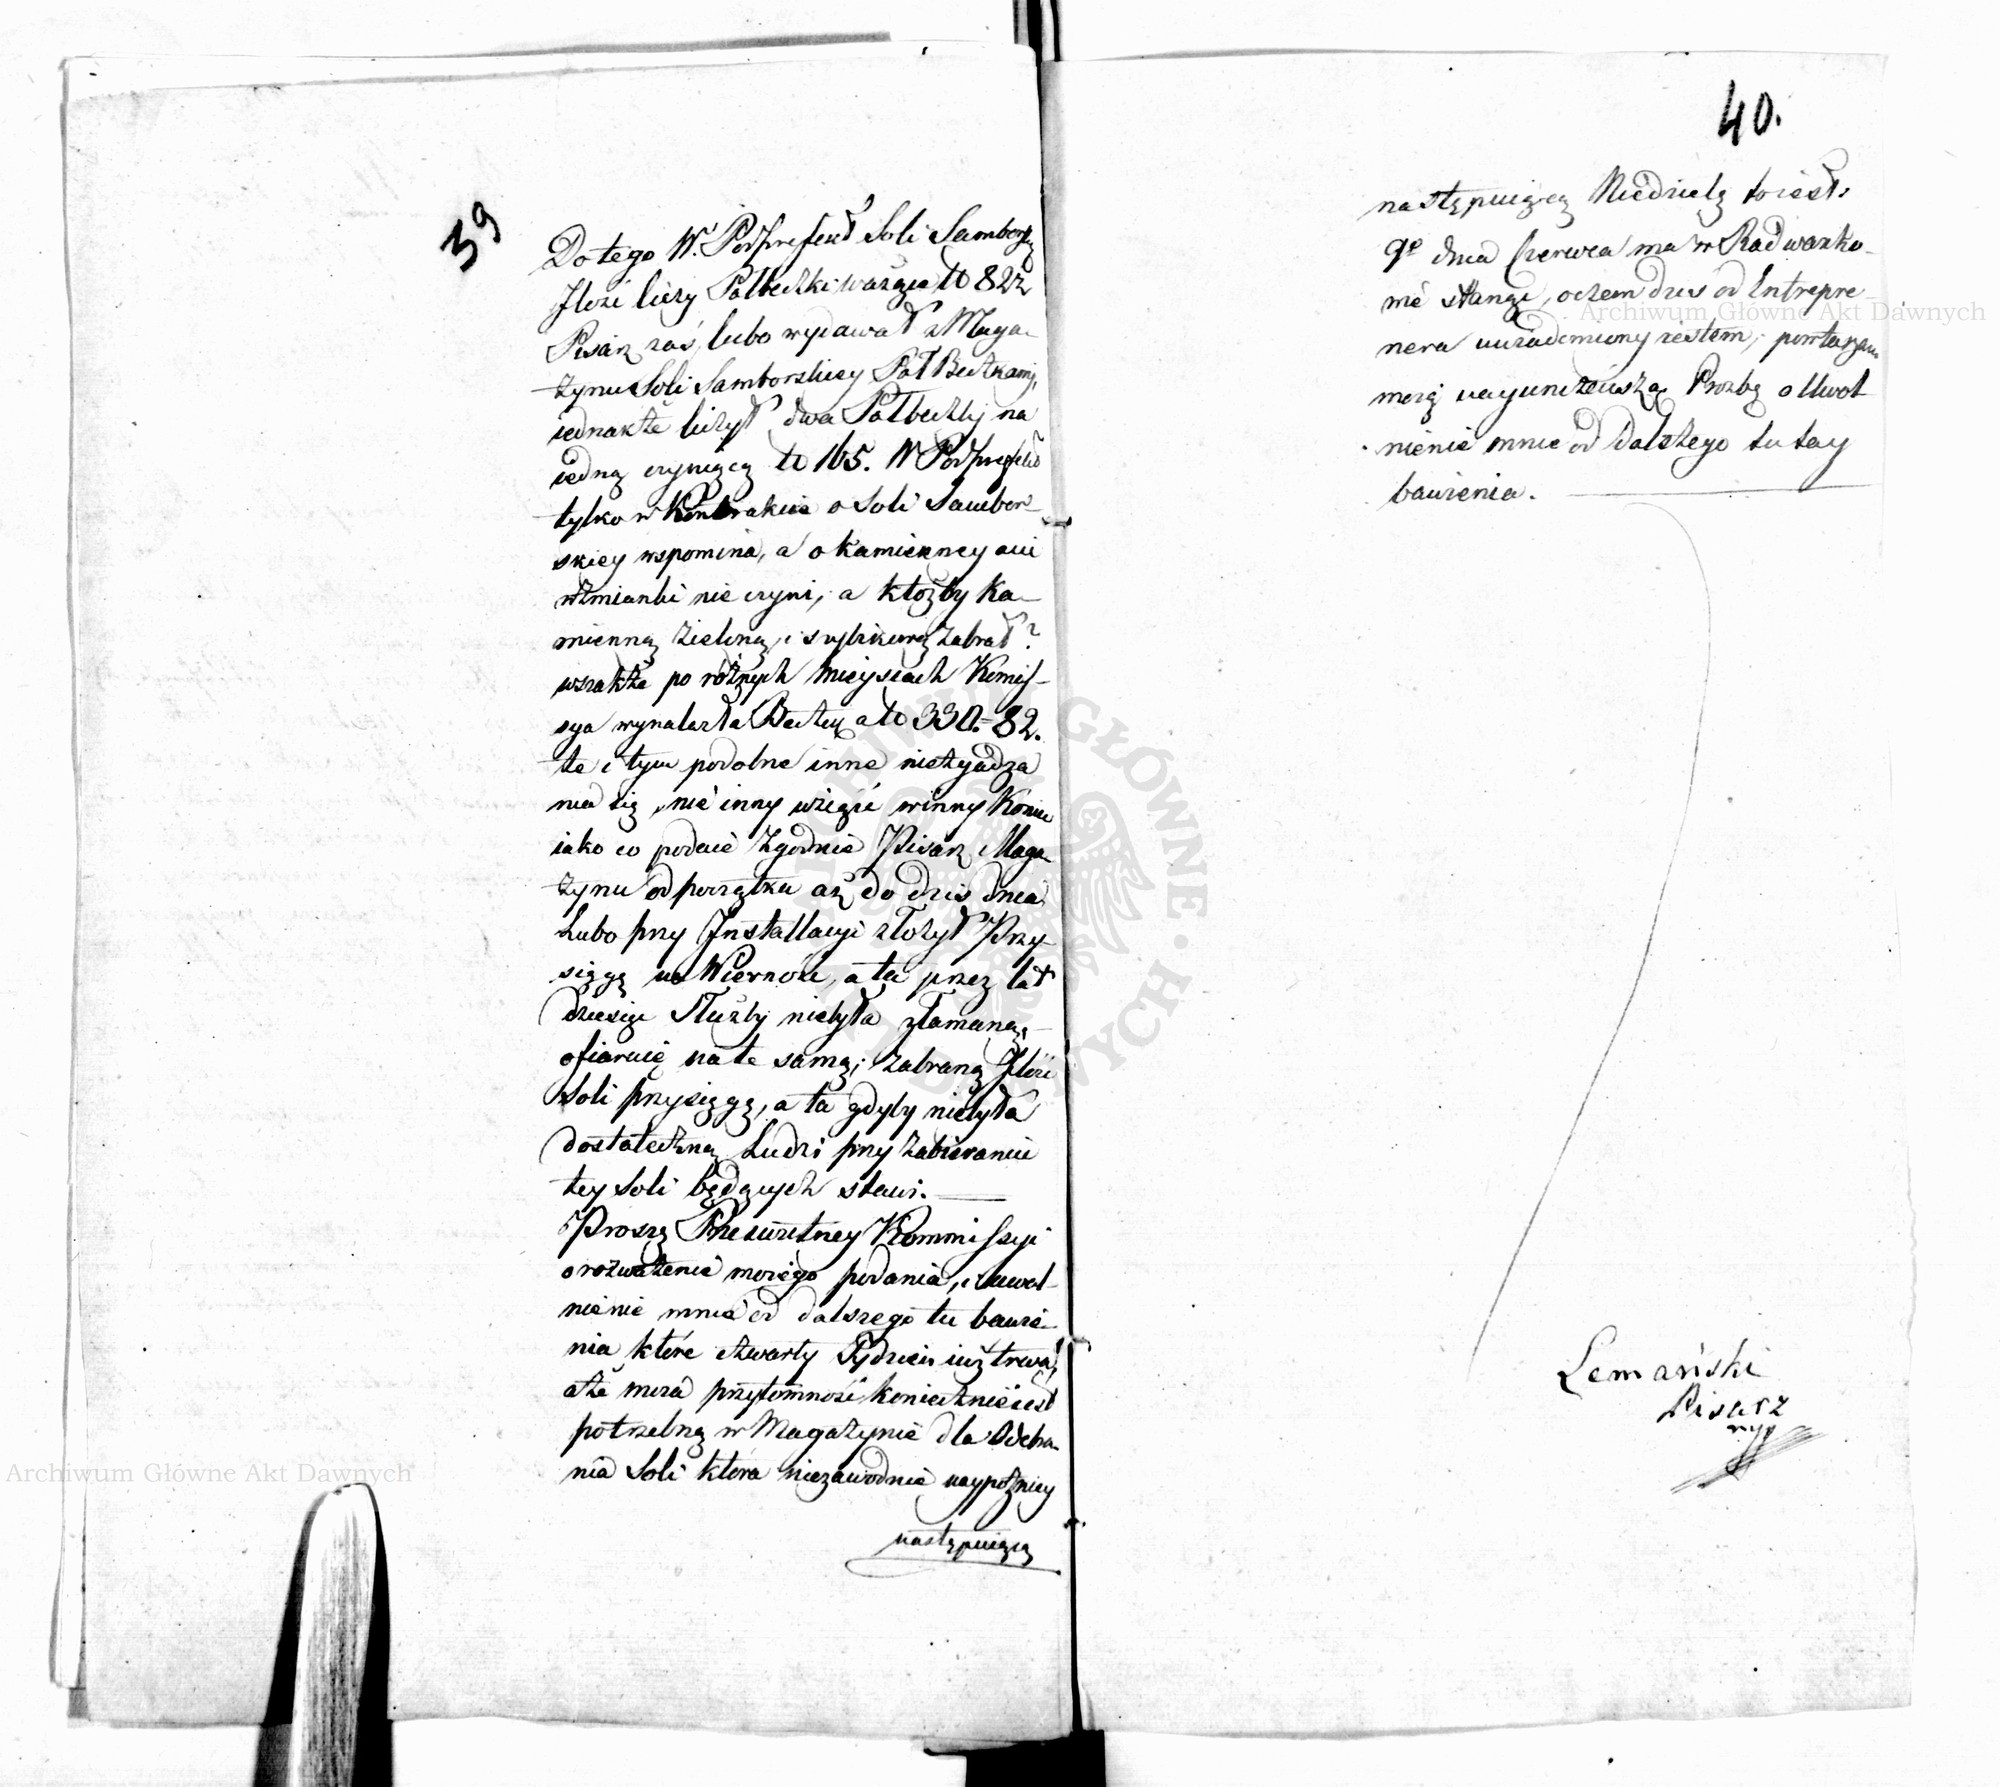 39
Do tego W. Podprefekt Soli Samborskiey
Jlość liczy Półbeczki ważące to 82½
Pisarz zaś, lubo wydawał z Maga-
zynu Soli Samborskiey PółBeczkami,
iednakże liczył dwa Półbeczki na
iedną czyniącą to 165. W Podprefekt
tylko w Kontrakcie o Soli Sambor-
skiey wspomina, a o kamienney ani
wzmianki nie czyni, a któżby ka-
mienną zieloną, i szybikową zabrał?
wszakże po różnych mieyscach Komis-
sya wynalazła Beczek a to 330.-82.
te i tym podobne inne niezgadza
nia się, nie inny wziąść winny koniec
iako co podaie zgodnie Pisarz Maga-
zynu od początku aż do dziś dnia
Lubo przy Installacyi złożył Przy-
sięgę na Wierność, a ta przez lat
dziesięć służby niebyła złamaną,
ofiaruię na te samą, zabraną Jlość
Soli przysięgę, a ta gdyby niebyła
dostateczną Ludzi przy zabieraniu
tey Soli będących stawi.
Proszę Prześwietney Kommissyi
o rozważenie moiego podania, i uwol-
nienie mnie od dalszego tu bawie-
nia które czwarty Tydzień iuż trwa,
a że moia przytomność koniecznie iest
potrzebną w Magazynie dla Odebra-
nia Soli która niezawodnie naypóźniey
następuiącą
40.
następuiącą Niedzielę to iest:
9º dnia Czerwca ma w Radwanko-
wie stanąć, o czem dziś od Entrepre-
nera uwiadomiony iestem, powtarzam
moią nayunizeńszą Proźbę o Uwol
nienie mnie od dalszego tutay
bawienia.
Lemański
Pisarz
mp
Archiwum Główne Akt Dawnych
Archiwum Główne Akt Dawnych